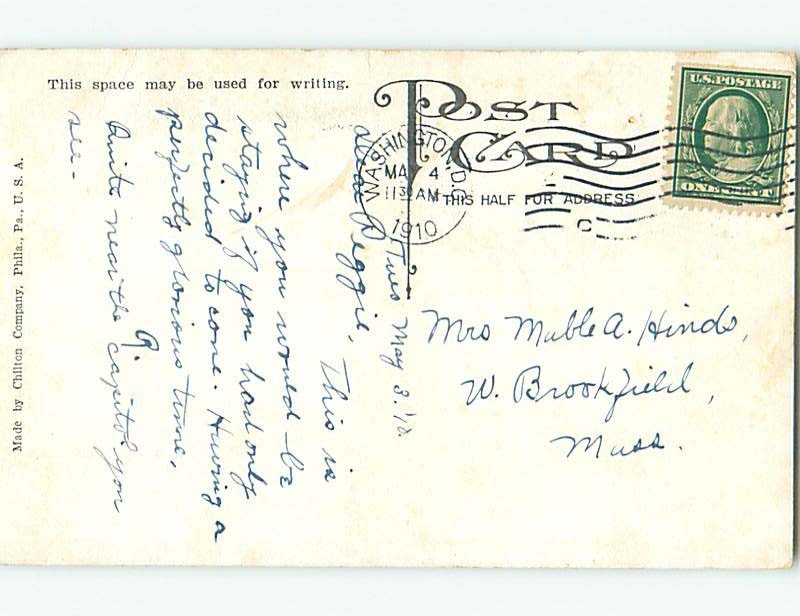 This space may be used for writing.
POST CARD
THIS HALF FOR ADDRESS
U.S. POSTAGE
ONE CENT
WASHINGTON, D.C.
MAY 4
1130 AM
1910
C
Tues May 3.'10.
Dear Peggie, This is
where you would be
staying if you had only
decided to come. Having a
perfectly glorious time.
Q.
Quite near the capitol you
see-
Mrs Mable A. Hinds,
W. Brookfield,
Mass.
Made by Chilton Company, Phila., Pa., U. S. A.